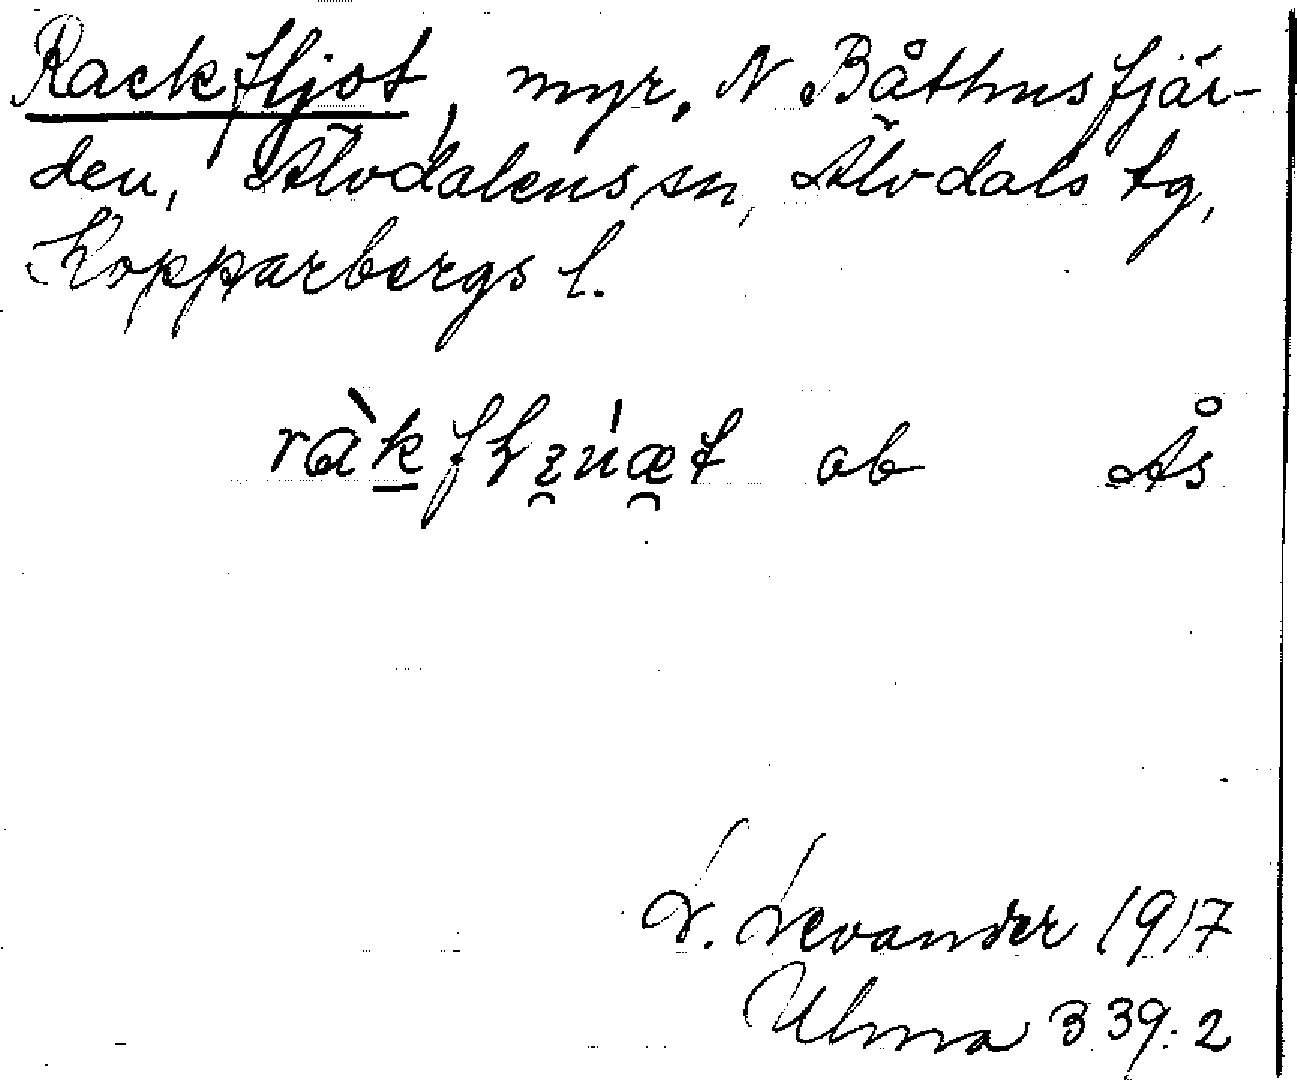 Rackfljot, myr, N Båthusfjär-
den, Älvdalens sn, Älvdals tg,
Kopparbergs l.
ob Ås
L. Levander 1917
Ulma 339:2